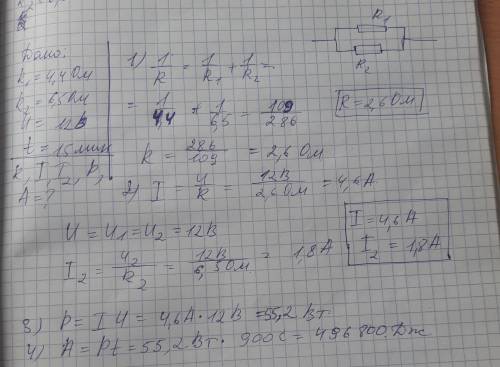 Дано:
R₁ = 4,4 Ом
R₂ = 6,5 Ом
U = 12 В
t = 15 мин
R, I, I₂, P,
A = ?
R₁
R₂
1) 1/R = 1/R₁ + 1/R₂ =
= 1/4,4 + 1/6,5 = 109/286
R = 2,6 Ом
R = 286/109 = 2,6 Ом
2) I = U/R = 12 В/2,6 Ом = 4,6 А
U = U₁ = U₂ = 12 В
I₂ = U₂/R₂ = 12 В/6,5 Ом = 1,8 А
I = 4,6 А
I₂ = 1,8 А
3) P = I U = 4,6 А · 12 В = 55,2 Вт
4) A = Pt = 55,2 Вт · 900 с = 496800 Дж